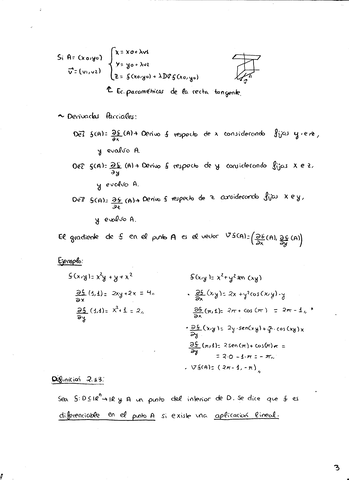 Si A = (x0, y0)
v⃗ = (v1, v2)
{ x = x0 + λv1
y = y0 + λv2
z = f(x0, y0) + λ Dv⃗ f(x0, y0)
Ec. paramétricas de la recta tangente.
~ Derivadas Parciales:
De1⃗ f(A) = ∂f/∂x (A) → Derivo f respecto de x considerando fijas y e z,
y evalúo A.
De2⃗ f(A) = ∂f/∂y (A) → Derivo f respecto de y considerando fijas x e z.
y evalúo A.
De3⃗ f(A) = ∂f/∂z (A) → Derivo f respecto de z considerando fijas x e y,
y evalúo A.
El gradiente de f en el punto A es el vector ∇f(A) = (∂f/∂x (A), ∂f/∂y (A))
Ejemplo:
f(x,y) = x²y + y + x²
∂f/∂x (1,1) = 2xy + 2x = 4
∂f/∂y (1,1) = x² + 1 = 2
f(x,y) = x² + y² sen (xy)
· ∂f/∂x (x,y) = 2x + y² cos(x,y) · y
∂f/∂x (π,1) = 2π + cos(π) = 2π - 1
· ∂f/∂y (x,y) = 2y · sen(xy) + y² · cos(xy) x
∂f/∂y (π,1) = 2 sen(π) + cos(π) π =
= 2·0 - 1·π = -π
· ∇f(A) = (2π - 1, -π)
Definición 2.3:
Sea f: D ⊆ ℝⁿ → ℝ y A un punto del interior de D. Se dice que f es
diferenciable en el punto A si existe una aplicación lineal
3